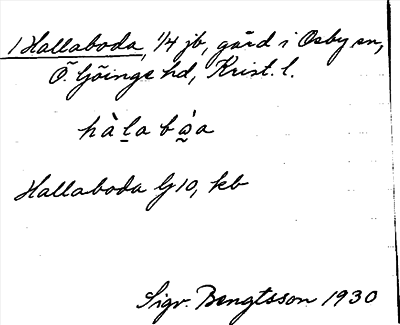 1 Hallaboda, 1/4 jb, gård i Osby sn,
Ö. Göinge hd, Krist. l.
Hallaboda G 10, kb
Sigv. Bengtsson 1930